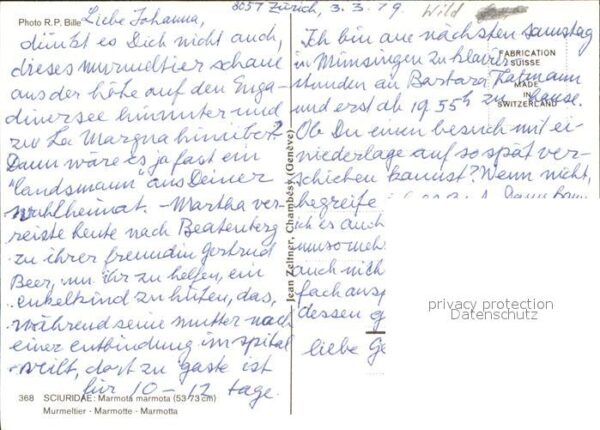 Photo R.P. Bille
8057 Zürich, 3.3.79 Wild
Liebe Johanna,
dünkt es Dich nicht auch,
dieses murmeltier schaue
aus der höhe auf den Enga-
dinersee hinunter und
zu La Margna hinüber?
Dann wäre es ja fast ein
"landsmann" aus Deiner
wahlheimat. - Martha ver-
reiste heute nach Beatenberg
zu ihrer freundin Gertrud
Beer, um ihr zu helfen, ein
enkelkind zu hüten, das,
während seine mutter nach
einer entbindung im spital
weilt, dort zu gaste ist
für 10-12 tage.
368 SCIURIDAE: Marmota marmota (53-73 cm)
Murmeltier - Marmotte - Marmotta
Jean Zeltner, Chambésy (Genève)
FABRICATION
SUISSE
MADE
IN
SWITZERLAND
Ich bin am nächsten samstag
in Münsingen zu klavier-
stunden an Barbara
und erst ab 19.55h zu hause.
Ob Du einen besuch mit ei-
niederlage auf so spät ver-
schieben kannst? Wenn nicht,
begreife
ich es auch
umso meh
auch nich
fach ausp
dessen g
liebe Ge
privacy protection
Datenschutz